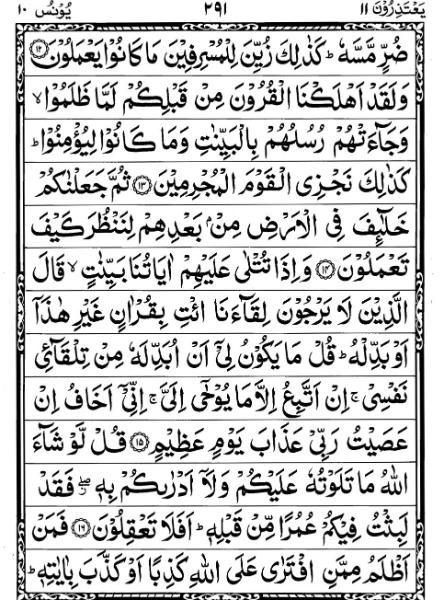 يَعْتَذِرُوْنَ ١١ ٢٩١ يُوْنُس ١٠
ضُرٍّ مَّسَّهٗ ؕ كَذٰلِكَ زُيِّنَ لِلْمُسْرِفِيْنَ مَا كَانُوْا يَعْمَلُوْنَ ﴿۱۲﴾
وَلَقَدْ اَهْلَكْنَا الْقُرُوْنَ مِنْ قَبْلِكُمْ لَمَّا ظَلَمُوْا ۙ
وَجَآءَتْهُمْ رُسُلُهُمْ بِالْبَيِّنٰتِ وَمَا كَانُوْا لِيُؤْمِنُوْا ؕ
كَذٰلِكَ نَجْزِى الْقَوْمَ الْمُجْرِمِيْنَ ﴿۱۳﴾ ثُمَّ جَعَلْنٰكُمْ
خَلٰٓئِفَ فِى الْاَرْضِ مِنْۢ بَعْدِهِمْ لِنَنْظُرَ كَيْفَ
تَعْمَلُوْنَ ﴿۱۴﴾ وَاِذَا تُتْلٰى عَلَيْهِمْ اٰيَاتُنَا بَيِّنٰتٍ ۙ قَالَ
الَّذِيْنَ لَا يَرْجُوْنَ لِقَآءَنَا ائْتِ بِقُرْاٰنٍ غَيْرِ هٰذَاۤ
اَوْ بَدِّلْهُ ؕ قُلْ مَا يَكُوْنُ لِىْۤ اَنْ اُبَدِّلَهٗ مِنْ تِلْقَآئِ
نَفْسِىْ ۚ اِنْ اَتَّبِعُ اِلَّا مَا يُوْحٰۤى اِلَىَّ ۚ اِنِّىْۤ اَخَافُ اِنْ
عَصَيْتُ رَبِّىْ عَذَابَ يَوْمٍ عَظِيْمٍ ﴿۱۵﴾ قُلْ لَّوْ شَآءَ
اللّٰهُ مَا تَلَوْتُهٗ عَلَيْكُمْ وَلَاۤ اَدْرٰىكُمْ بِهٖ ۖ فَقَدْ
لَبِثْتُ فِيْكُمْ عُمُرًا مِّنْ قَبْلِهٖ ؕ اَفَلَا تَعْقِلُوْنَ ﴿۱۶﴾ فَمَنْ
اَظْلَمُ مِمَّنِ افْتَرٰى عَلَى اللّٰهِ كَذِبًا اَوْ كَذَّبَ بِاٰيٰتِهٖ ؕ